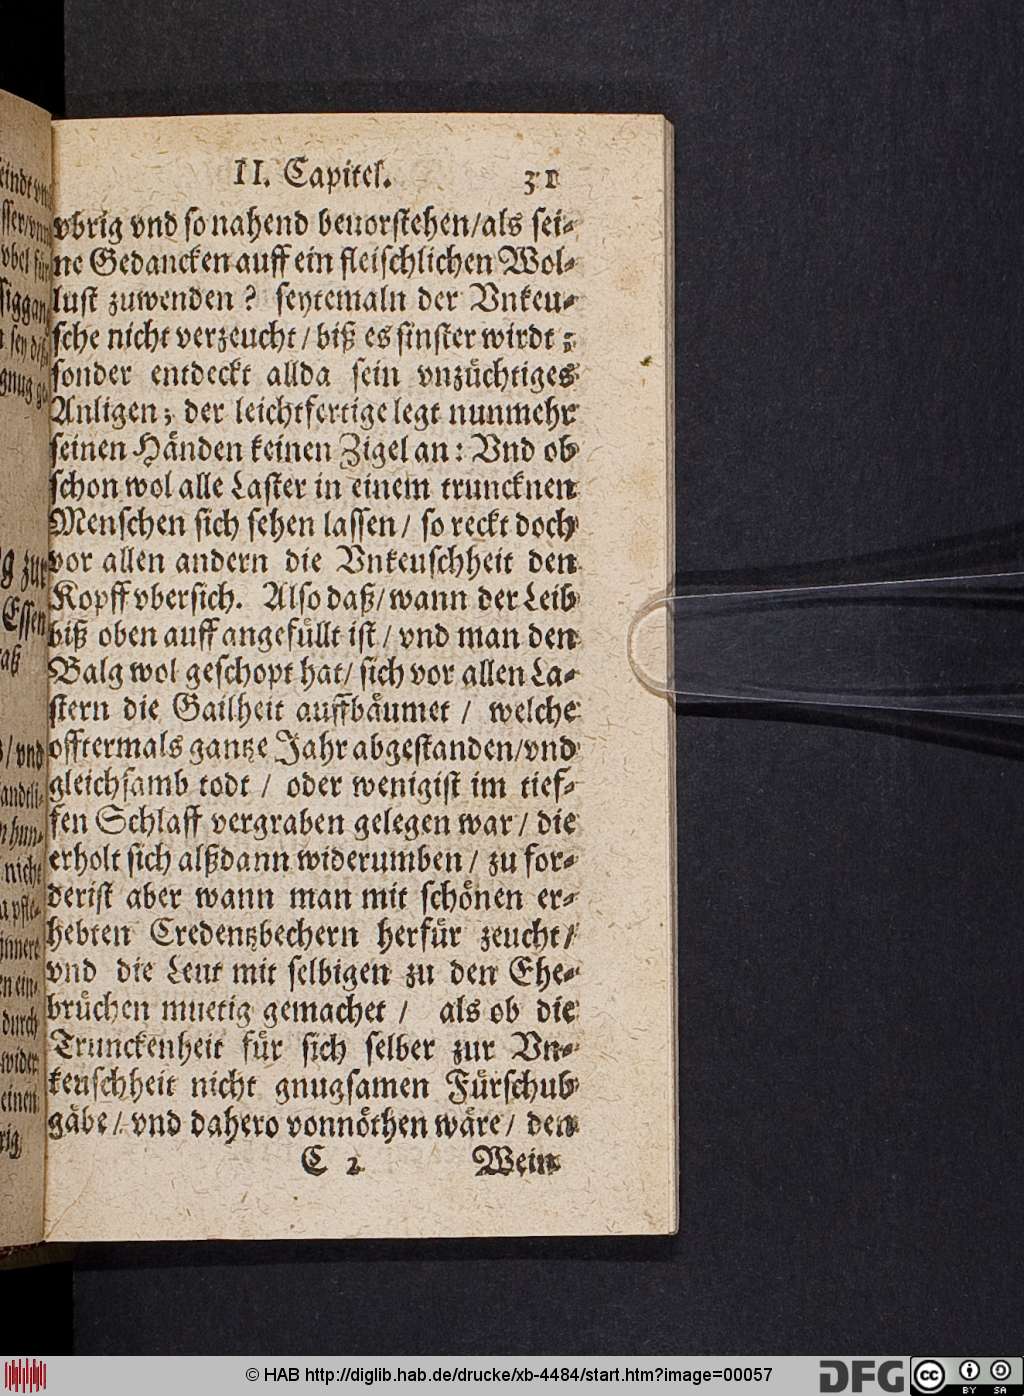 II. Capitel. 31
vbrig vnd so nahend beuorstehen/als sei-
ne Gedancken auff ein fleischlichen Wol-
lust zuwenden? seytemaln der Vnkeu-
sche nicht verzeucht/ biß es finster wirdt;
sonder entdeckt allda sein vnzüchtiges
Anligen; der leichtfertige legt nunmehr
seinen Händen keinen Zigel an: Vnd ob
schon wol alle Laster in einem truncknen
Menschen sich sehen lassen/ so reckt doch
vor allen andern die Vnkeuschheit den
Kopff vbersich. Also daß/wann der Leib
biß oben auff angefüllt ist/ vnd man den
Balg wol geschopt hat/ sich vor allen La-
stern die Gailheit auffbäumet/ welche
offtermals gantze Jahr abgestanden/vnd
gleichsamb todt/ oder wenigist im tief-
fen Schlaff vergraben gelegen war/ die
erholt sich alßdann widerumben/ zu for-
derist aber wann man mit schönen er-
hebten Credentzbechern herfür zeucht/
vnd die Leut mit selbigen zu den Ehe-
brüchen muetig gemachet/ als ob die
Trunckenheit für sich selber zur Vn-
keuschheit nicht gnugsamen Fürschub
gäbe/ vnd dahero vonnöthen wäre/ den
C 2 Wein
© HAB http://diglib.hab.de/drucke/xb-4484/start.htm?image=00057
DFG
cc BY SA